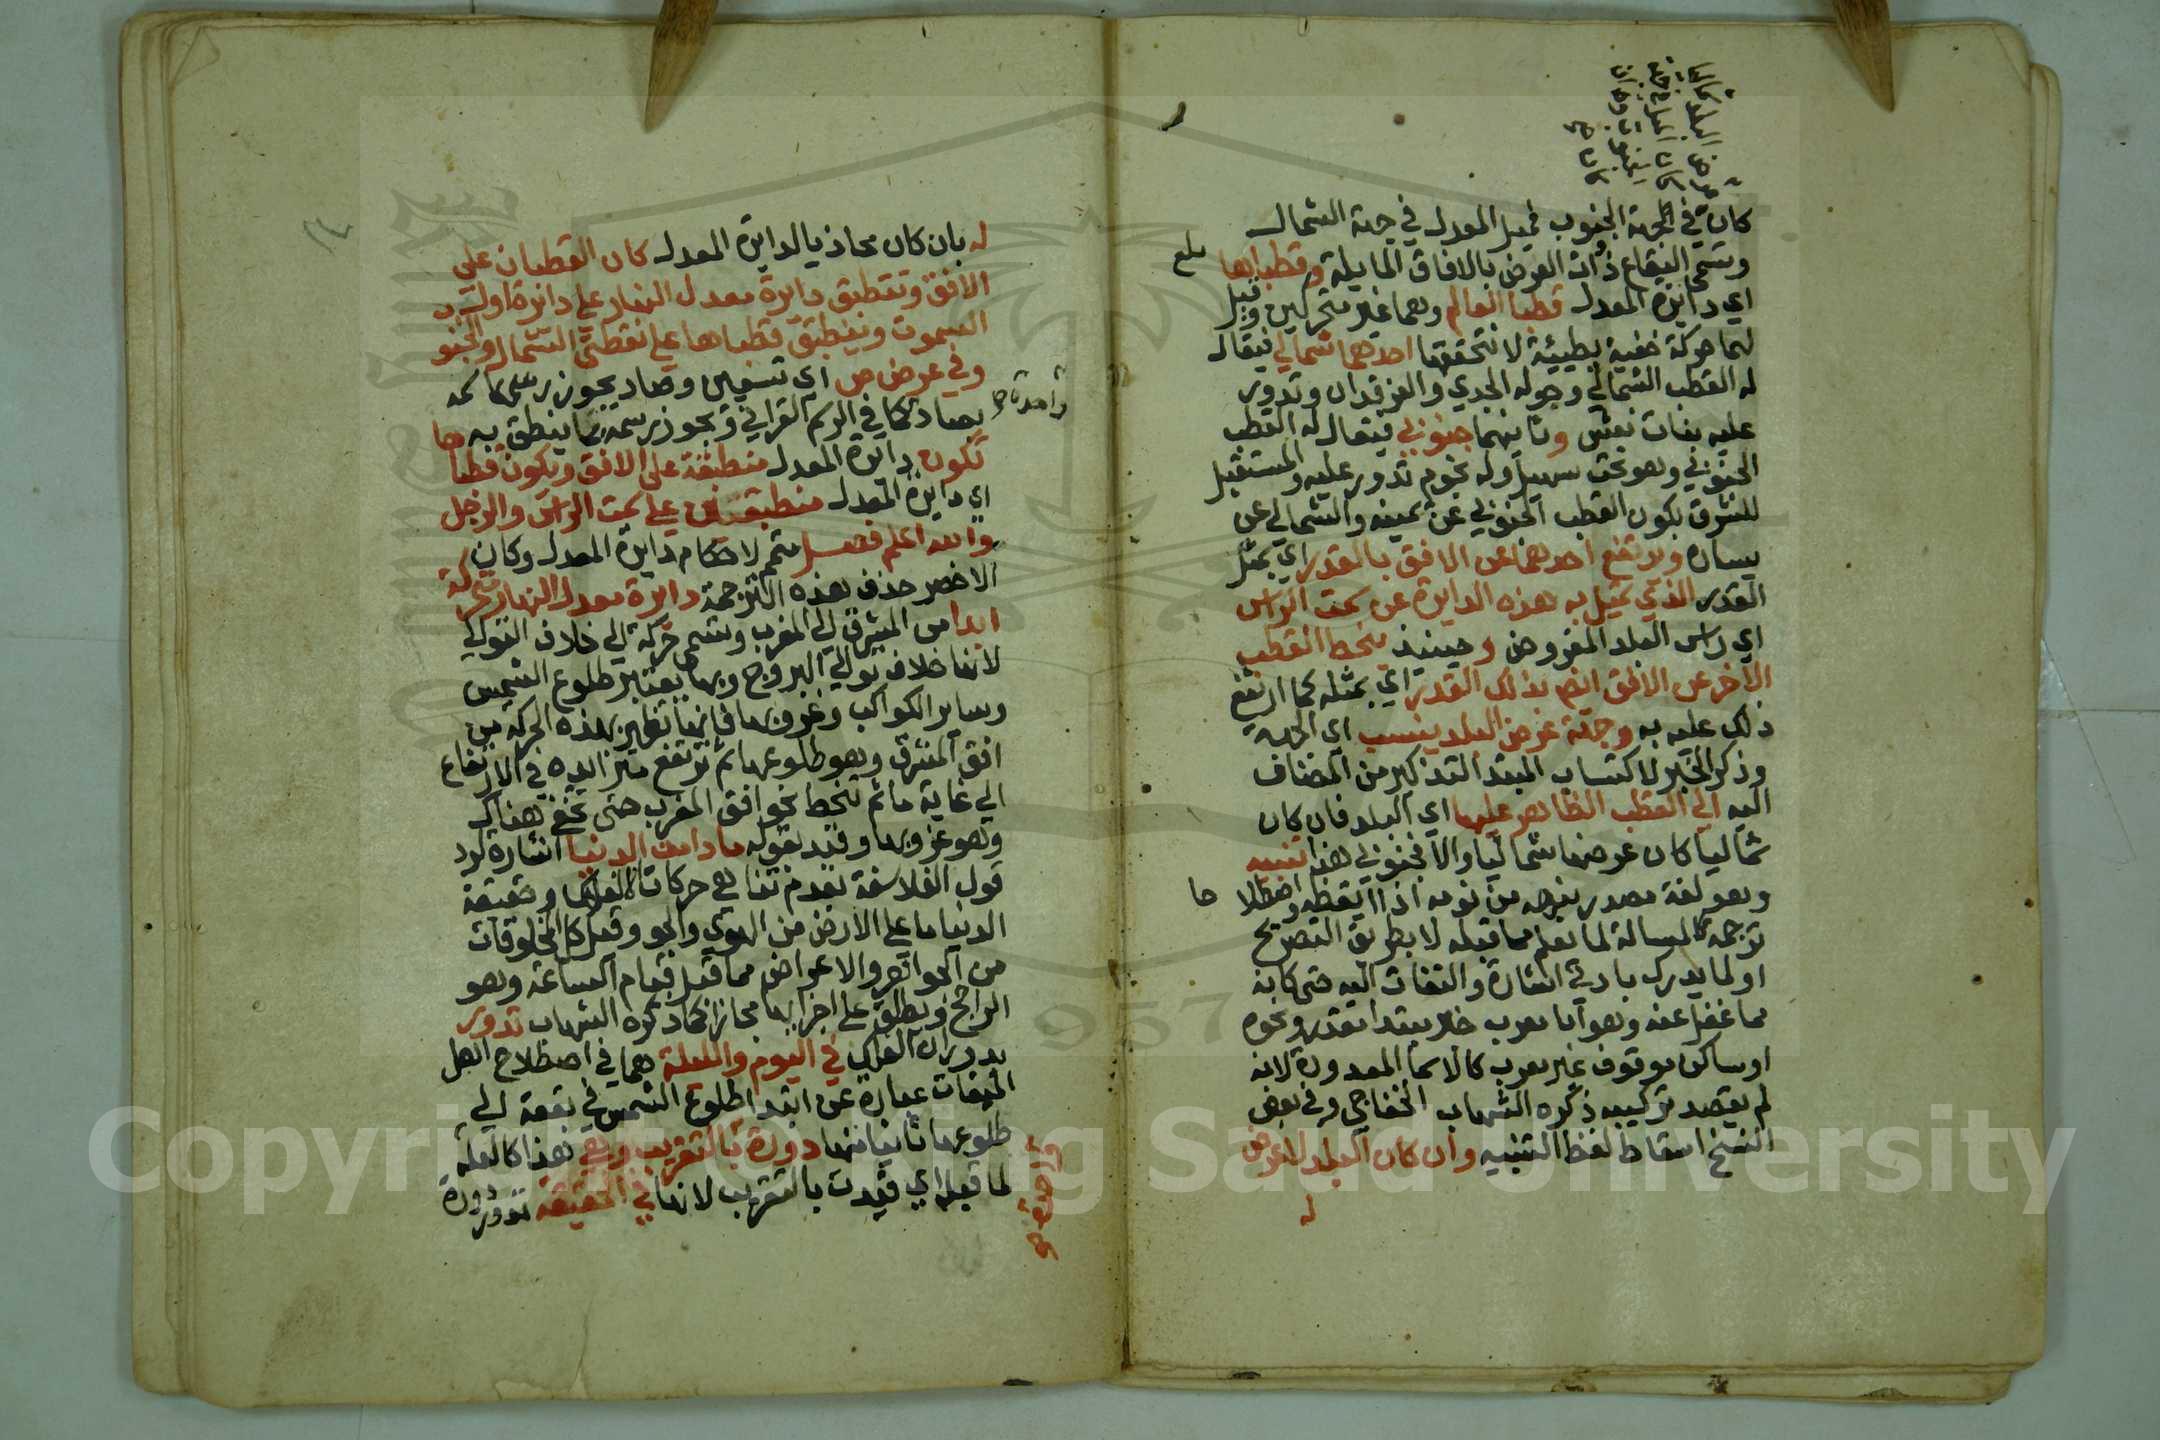 كان في الجهة الجنوب فميل المعدل في جهة الشمال
وتسمى البقاع ذات العرض بالافاق المايلة وقطباها
اي دايرة المعدل قطبا العالم وهما غير متحركين وقيل
لهما حركة خفية بطيئة لا تتحققها احدهما شمالي فيقال
له القطب الشمالي وحوله الجدي والفرقدان وتدور
عليه بنات نعش وثانيهما جنوبي فيقال له القطب
الجنوبي وهو تحت سهيل وله نجوم تدور عليه والمستقبل
للشرق يكون القطب الجنوبي عن يمينه والشمالي عن
يساره ويرتفع احدهما عن الافق بالقدر اي بمثل
القدر الذي تميل به هذه الدايرة عن سمت الراس
اي راس البلد المفروض وحينئذ ينحط القطب
الاخر عن الافق ايضا بذلك القدر اي بمثله كما ارتفع
ذلك عليه به وجهة عرض البلد ينسب اي الجهة
وذكر الخبر لاكتساب المبتدا التذكير من المضاف
اليه الي القطب الظاهر عليها اي البلد فان كان
شماليا كان عرضها شماليا والا فجنوبي هذا تنبيه
وهو لغة مصدر نبهه من نومه اذا ايقظه واصطلاحا
ترجمة لمسالة لما تعلم مما قبله لا بطريق التصريح
او لما يدرك بادني اشارة والتفات اليه حتى كانه
مما غفل عنه وهو اما معرب خبر مبتدا مقدر ونحوه
او ساكن موقوف غير معرب كالاسما المعدودة لانه
لم يقصد تركيبه ذكره الشهاب الخفاجي وفي بعض
النسخ اسقاط لفظ التنبيه وان كان البلد لا عرض
له
بلغ
له بان كان محاذيا لدايرة المعدل كان القطبان على
الافق وتنطبق دائرة معدل النهار علي دائرة اول
السموت وينطبق قطباها علي نقطتي الشمال والجنوب
وفي عرض ص اي تسعين وصاد يجوز رسمها كما
بصاد كما في الرسم القراني ويجوز رسمه بما ينطق به
تكون دايرة المعدل منطبقة على الافق ويكون قطباها
اي دايرة المعدل منطبقين علي سمت الراس والرجل
والله اعلم فصل متمم لاحكام دايرة المعدل وكان
الاخصر حذف هذه الترجمة دائرة معدل النهار متحركة
ابدا من المشرق الي المغرب وتسمى حركة الي خلاف التوالي
لانها خلاف توالي البروج وبها يعتبر طلوع الشمس
وساير الكواكب وغروبها فانها تظهر بهذه الحركة من
افق المشرق وهو طلوعها ثم ترتفع متزايدة في الارتفاع
الي غاية ما ثم تنحط نحو افق المغرب حتى تخفى هناك
وهو غروبها وقيد بقوله ما دامت الدنيا اشارة لرد
قول الفلاسفة بعدم تناهي حركات الفلك وحقيقة
الدنيا ما علي الارض من الهوي والجو وقيل كل المخلوقات
من الجواهر والاعراض مما قبل قيام الساعة وهو
الراجح ويطلق على اجزائها مجازا كما ذكره الشهاب تدور
بدوران الفلك في اليوم والليلة هما في اصطلاح اهل
الميقات عبارة عن ابتدا طلوع الشمس في بقعة الي
طلوعها ثانيا منها دورة بالتقريب وهي هذا كالعلة
لما قبل اي قيدت بالتقريب لانها في الحقيقة تدور دورة
واحدة صح
واحدة صح